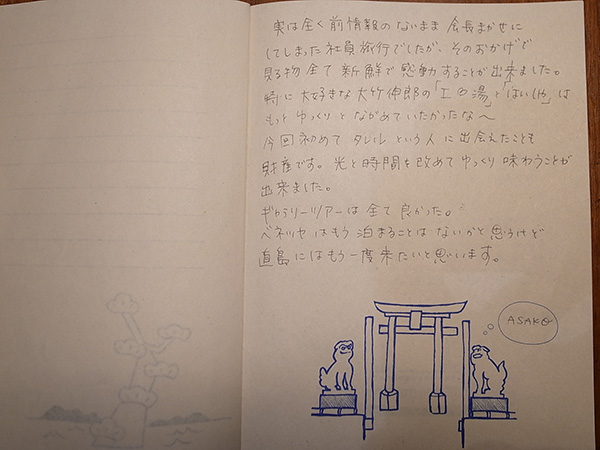 実は全く前情報のないまま 会長まかせに
してしまった社員旅行でしたが、そのおかげで
見る物全て新鮮で感動することが出来ました。
特に大好きな大竹伸郎の「I♡湯」と「はいしゃ」は
もっとゆっくりとながめていたかったな〜
今回初めてタレルという人に出会えたことも
財産です。光と時間を改めてゆっくり味わうことが
出来ました。
ギャラリーツアーは全て良かった。
ベネッセはもう泊まることはないかと思うけど
直島にはもう一度来たいと思います。
ASAKO